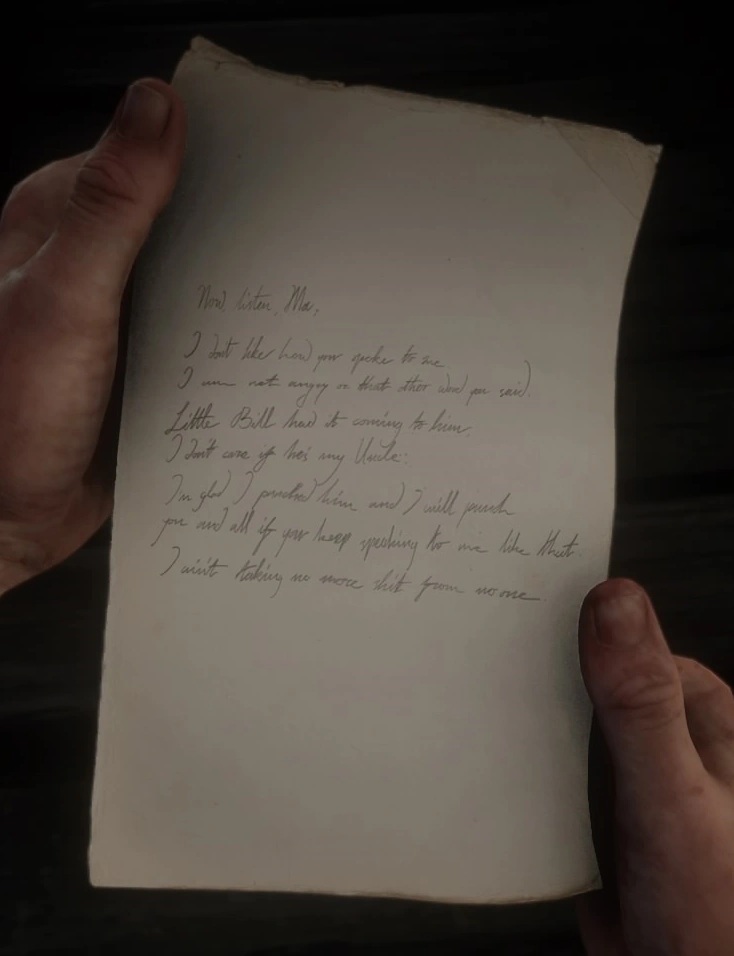 Now listen, Ma,
I don't like how you spoke to me
I am not angry or that other word you said.
Little Bill had it coming to him.
I don't care if he's my Uncle.
I'm glad I punched him and I will punch
you and all if you keep speaking to me like that.
I ain't taking no more shit from no one.